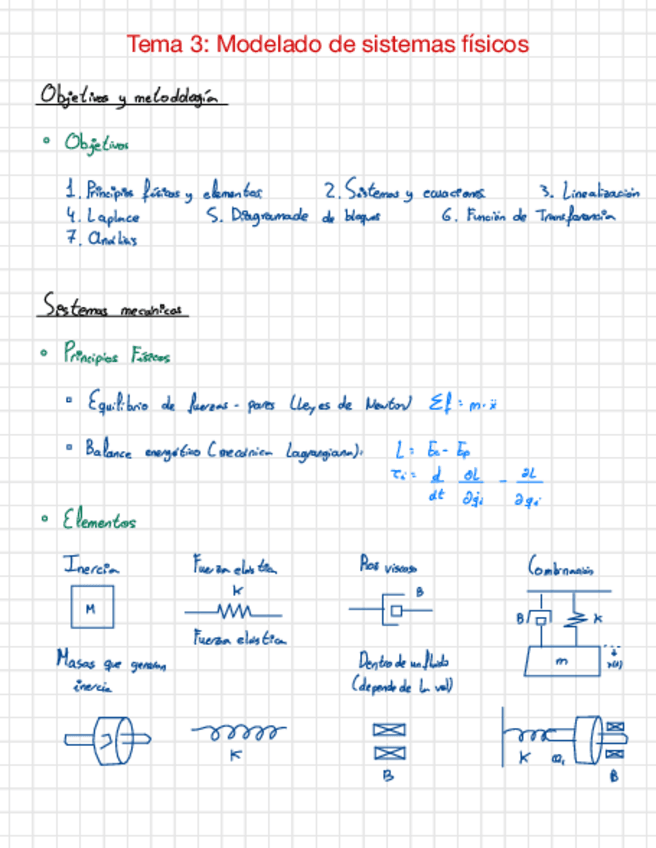 Tema 3: Modelado de sistemas físicos
Objetivos y metodología
Objetivos
1. Principios físicos y elementos 2. Sistemas y ecuaciones 3. Linealización
4. Laplace 5. Diagramade de bloques 6. Función de Transferencia
7. Análisis
Sistemas mecánicos
Principios Físicos
Equilibrio de fuerzas - pares (leyes de Newton) Σf = m·ẍ
Balance energético (mecánica Lagrangiana): L = Ec - Ep
τi = d/dt ∂L/∂q̇i - ∂L/∂qi
Elementos
Inercia Fuerza elástica Roz viscoso Combinación
K B
M
B K
Fuerza elástica
m x(t)
Masas que generan
inercia
Dentro de un fluido
(depende de la vel)
J
K K B
B